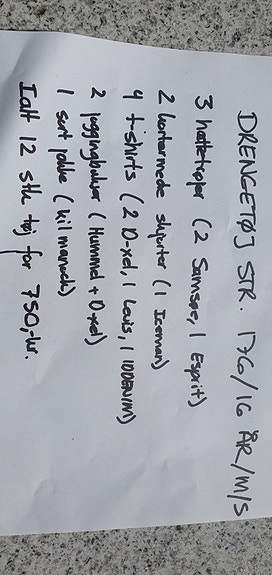 DRENGETØJ STR. 176/16 ÅR/M/S
3 hættetrøjer (2 Samsøe, 1 Esprit)
2 kortærmede skjorter (1 Iceman)
4 t-shirts (2 D-xel, 1 Levis, 1 DDENIM)
2 joggingbukser (Hummel + D-xel)
1 sort jakke (kilmanock)
Ialt 12 stk tøj for 750,-kr.